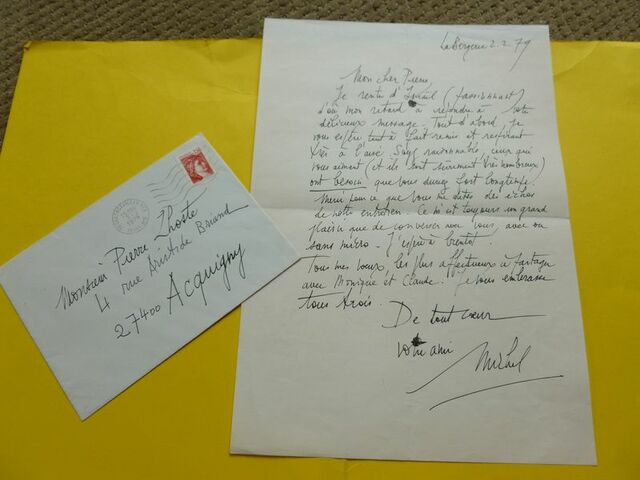 La Bergerie 2.2.79
Mon cher Pierre,
Je rentre d'Israël (passionnant)
d'où mon retard à répondre à votre
délicieux message. Tout d'abord, je
vous espère tout à fait remis et respirant
très à l'aise. Soyez raisonnable, ceux qui
vous aiment (et ils sont sûrement très nombreux)
ont besoin que vous duriez fort longtemps.
Merci pour ce que vous me dites des échos
de notre entretien. Ce m'est toujours un grand
plaisir que de converser avec vous, avec ou
sans micro. J'espère à bientôt.
Tous mes vœux, les plus affectueux à partager
avec Monique et Claude. Je vous embrasse
tous trois.
De tout cœur
votre ami
Michel
Monsieur Pierre Lhoste
4 rue Aristide Briand
27400 Acquigny